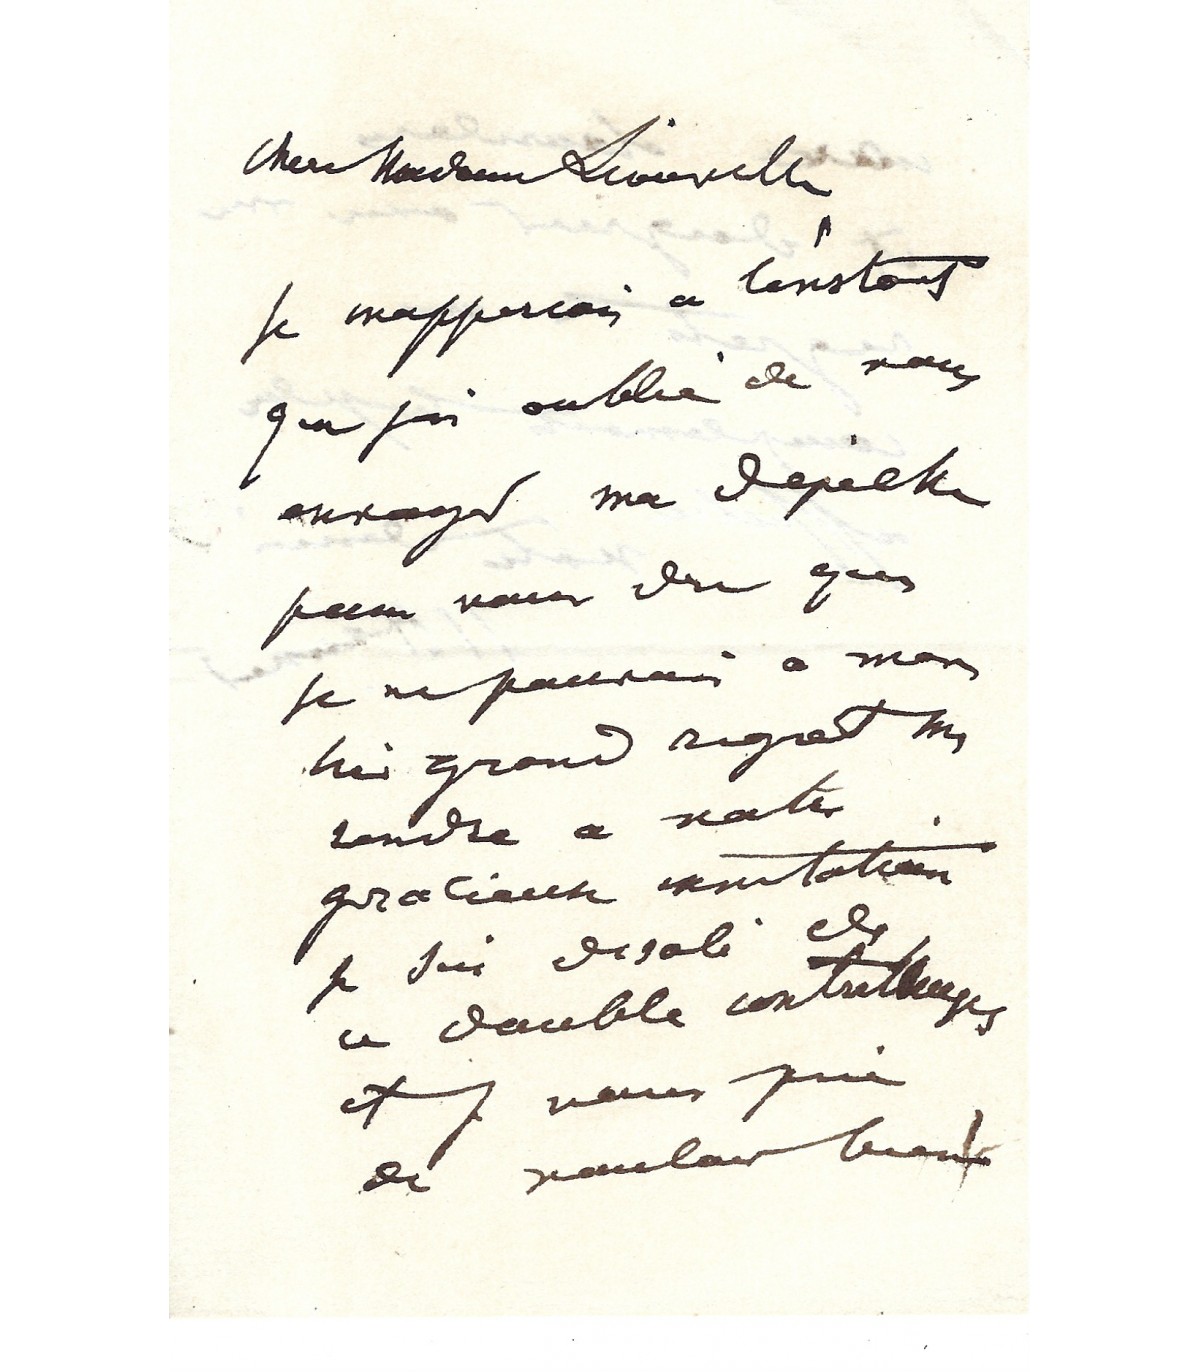 chere Madame Liouville
Je mapperçois a l'instant
que j'ai oublié de vous
envoyer ma dépêche
pour vous dire que
je ne pourrai a mon
tres grand regret me
rendre a votre
gracieuse invitation
je suis desolé de
ce double contretemps
et je vous prie
de vouloir bien